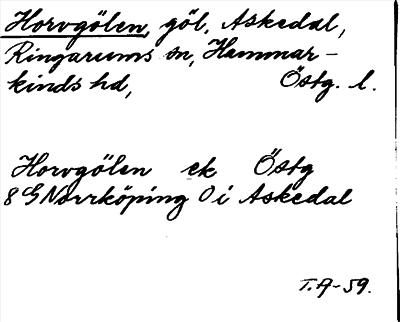 Horvgölen, göl, Askedal,
Ringarums sn, Hammar-
kinds hd, Östg. l.
Horvgölen ek Östg
8G Norrköping Öi Askedal
T.A-59.